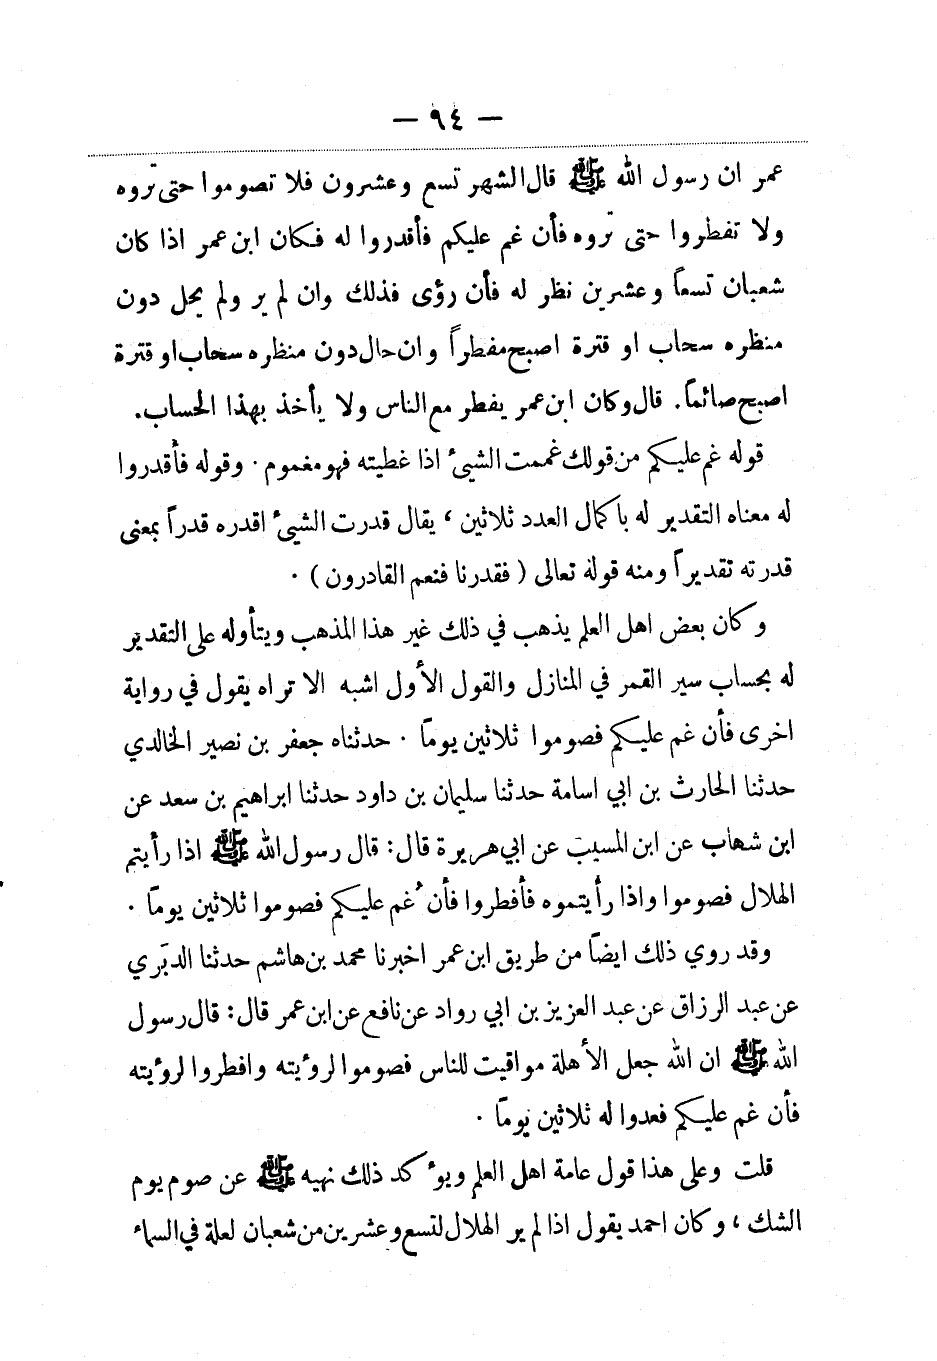 — ٩٤ —
عمر ان رسول الله ﷺ قال الشهر تسع وعشرون فلا تصوموا حتى تروه
ولا تفطروا حتى تروه فأن غم عليكم فأقدروا له فكان ابن عمر اذا كان
شعبان تسعاً وعشرين نظر له فأن رؤى فذلك وان لم ير ولم يحل دون
منظره سحاب او قترة اصبح مفطراً وان حال دون منظره سحاب او قترة
اصبح صائماً. قال وكان ابن عمر يفطر مع الناس ولا يأخذ بهذا الحساب.
قوله غم عليكم من قولك غممت الشيئ اذا غطيته فهو مغموم . وقوله فأقدروا
له معناه التقدير له باكمال العدد ثلاثين ، يقال قدرت الشيئ اقدره قدراً بمعنى
قدرته تقديراً ومنه قوله تعالى ( فقدرنا فنعم القادرون ) .
وكان بعض اهل العلم يذهب في ذلك غير هذا المذهب ويتأوله على التقدير
له بحساب سير القمر في المنازل والقول الأول اشبه الا تراه يقول في رواية
اخرى فأن غم عليكم فصوموا ثلاثين يوماً . حدثناه جعفر بن نصير الخالدي
حدثنا الحارث بن ابي اسامة حدثنا سليمان بن داود حدثنا ابراهيم بن سعد عن
ابن شهاب عن ابن المسيب عن ابي هريرة قال : قال رسول الله ﷺ اذا رأيتم
الهلال فصوموا واذا رأيتموه فأفطروا فأن غُم عليكم فصوموا ثلاثين يوماً .
وقد روي ذلك ايضاً من طريق ابن عمر اخبرنا محمد بن هاشم حدثنا الدبَري
عن عبد الرزاق عن عبد العزيز بن ابي رواد عن نافع عن ابن عمر قال : قال رسول
الله ﷺ ان الله جعل الأهلة مواقيت للناس فصوموا لرؤيته وافطروا لرؤيته
فأن غم عليكم فعدوا له ثلاثين يوماً .
قلت وعلى هذا قول عامة اهل العلم ويؤكد ذلك نهيه ﷺ عن صوم يوم
الشك ، وكان احمد يقول اذا لم ير الهلال لتسع وعشرين من شعبان لعلة في السماء